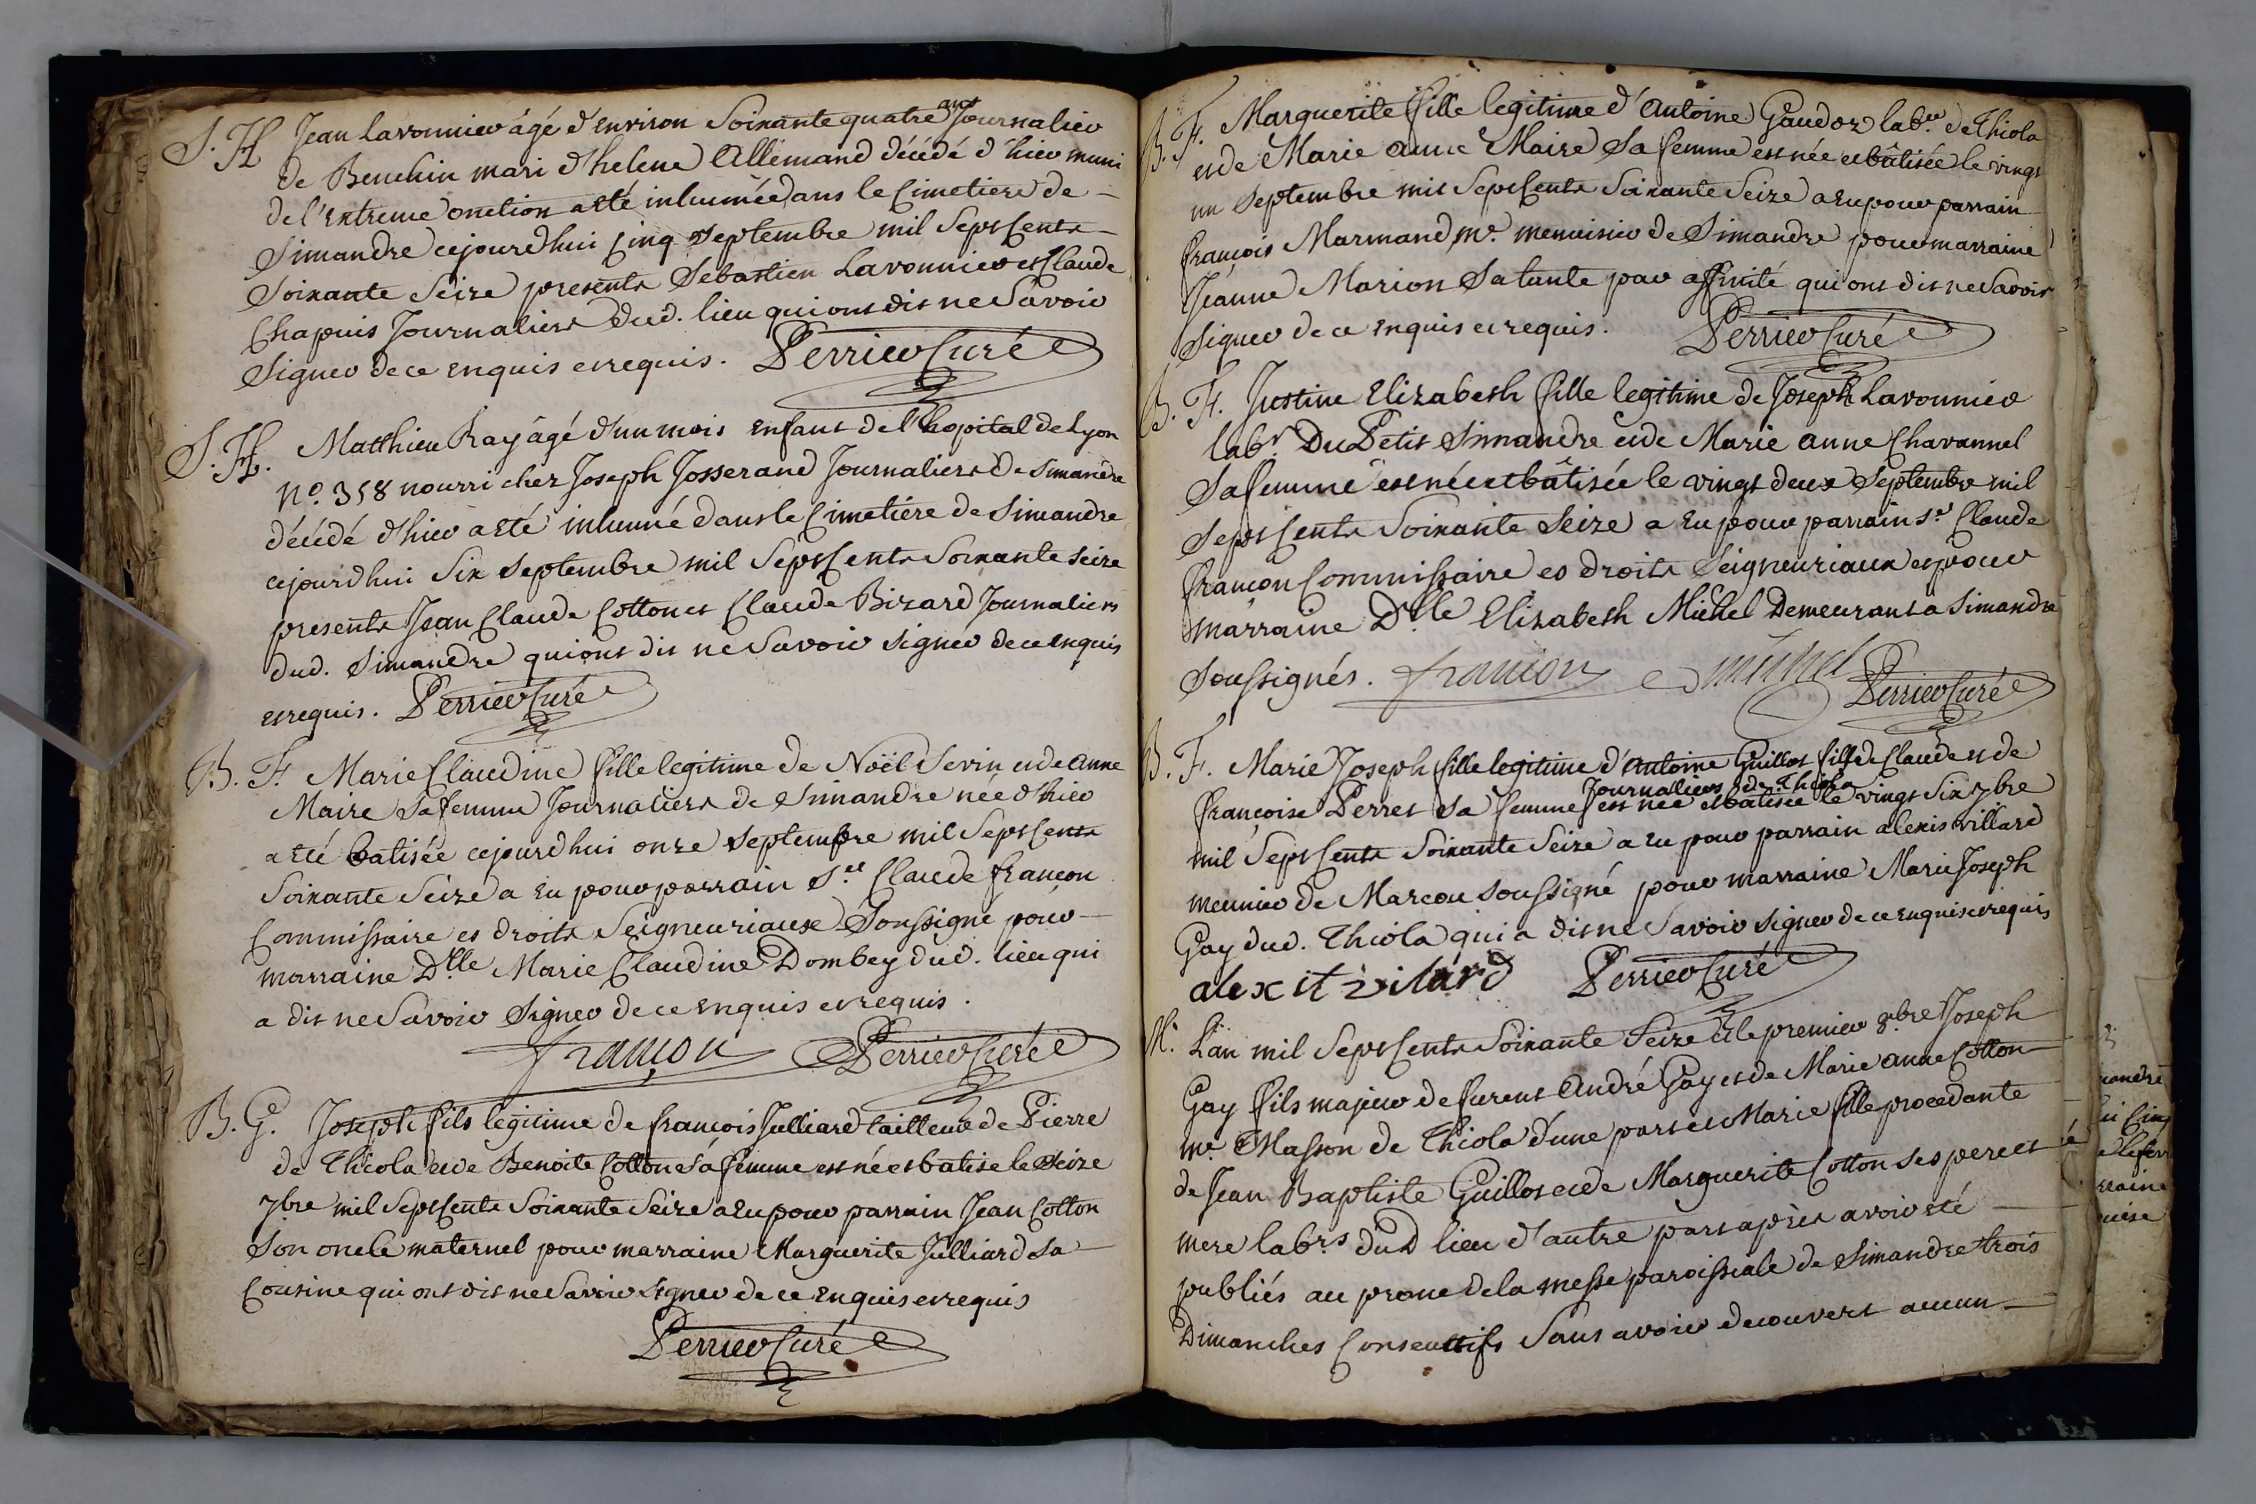 S. H. Jean Lavonnier âgé d'environ Soixante quatre ans Journalier
de Beuchin mari d'helene Allemand décédé d'hier muni
de l'extreme onction a eté inhumée dans le Cimetiere de
Simandre cejourdhui Cinq Septembre mil Sept Cents
Soixante Seize presents Sebastien Lavonnier et Claude
Chapuis Journaliers dud. lieu qui ont dit ne Savoir
Signer de ce enquis et requis. Perrier Curé
S. H. Matthieu Ray âgé d'un mois enfant de l'hopital de Lyon
No. 358 nourri chez Joseph Josserand Journaliers de Simandre
décédé d'hier a eté inhumé dans le Cimetiére de Simandre
cejourdhui Six Septembre mil Sept Cents Soixante Seize
presents Jean Claude Cotton et Claude Bizard Journaliers
dud. Simandre qui ont dit ne Savoir Signer de ce enquis
et requis. Perrier Curé
B. F. Marie Claudine fille legitime de Noël Sevin et de Anne
Maire Sa femme Journaliers de Simandre née d'hier
a eté batisée cejourdhui onze Septembre mil Sept Cents
Soixante Seize a eu pour parrain Sr. Claude françon
Commissaire es droits Seigneuriaux Soussigné pour
marraine Dlle Marie Claudine Dombey dud. lieu qui
a dit ne Savoir Signer de ce enquis et requis.
françon Perrier Curé
B. G. Joseph fils legitime de françois Julliard tailleur de Pierre
de Thiola et de Benoite Cotton Sa femme est né et batisé le Seize
7bre mil Sept Cents Soixante Seize a eu pour parrain Jean Cotton
Son oncle maternel pour marraine Marguerite Julliard Sa
Cousine qui ont dit ne Savoir Signer de ce enquis et requis
Perrier Curé
B. F. Marguerite fille legitime d'Antoine Gaudoz labr. de Thiola
et de Marie anne Maire Sa femme est née et bâtisée le vingt
un Septembre mil Sept Cents Soixante Seize a eu pour parrain
françois Marmand me. menuisier de Simandre pour marraine
Jeanne Marion Sa tante par affinité qui ont dit ne Savoir
Signer de ce enquis et requis. Perrier Curé
B. F. Justine Elizabeth fille legitime de Joseph Lavonnier
labr. Du Petit Simandre et de Marie anne Chavannel
Sa femme est née et bâtisée le vingt deux Septembre mil
Sept Cents Soixante Seize a eu pour parrain Sr. Claude
françon Commissaire es droits Seigneuriaux et pour
marraine Dlle Elizabeth Michel Demeurant a Simandre
Soussignés. françon michel Perrier Curé
B. F. Marie Joseph fille legitime d'Antoine Guillot fils de Claude et de
françoise Perret Sa femme Journaliers de Thiola est née et batisée le vingt Six 7bre
mil Sept Cents Soixante Seize a eu pour parrain alexis villard
meunier de Marcou Soussigné pour marraine Marie Joseph
Gay dud. Thiola qui a dit ne Savoir Signer de ce enquis et requis
alexit vilard Perrier Curé
M. L'an mil Sept Cents Soixante Seize et le premier 8bre Joseph
Gay fils majeur de furent André Gay et de Marie anne Cotton
me. Masson de Thiola d'une part et Marie fille procedante
de Jean Baptiste Guillot et de Marguerite Cotton Ses pere et
mere labrs. dud lieu d'autre part après avoir eté
publiés au prone de la messe paroissiale de Simandre trois
Dimanches Consecutifs Sans avoir decouvert aucun